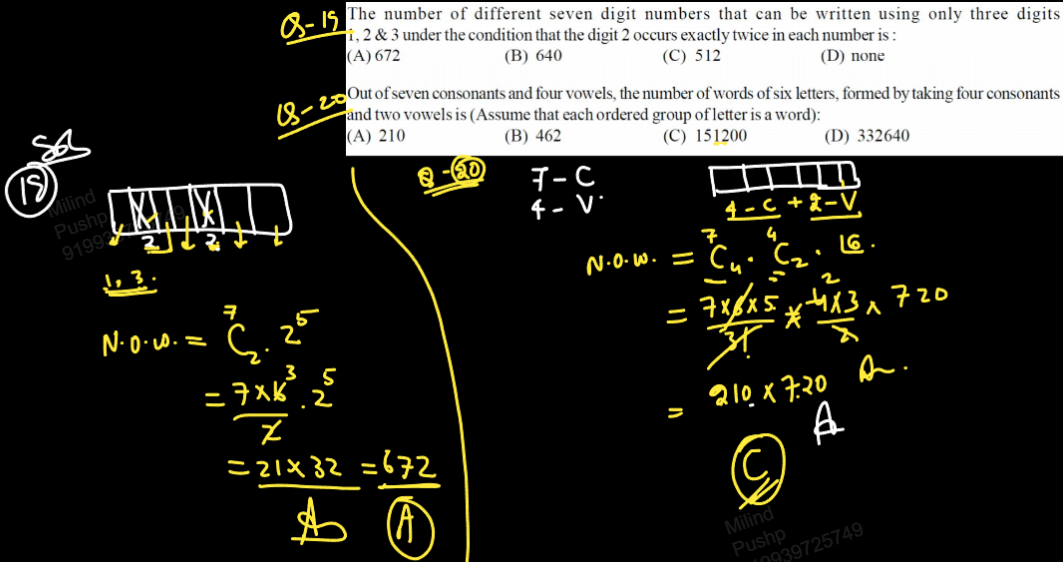 Q-19
The number of different seven digit numbers that can be written using only three digits
1, 2 & 3 under the condition that the digit 2 occurs exactly twice in each number is :
(A) 672 (B) 640 (C) 512 (D) none
Q-20
Out of seven consonants and four vowels, the number of words of six letters, formed by taking four consonants
and two vowels is (Assume that each ordered group of letter is a word):
(A) 210 (B) 462 (C) 151200 (D) 332640
Sol
19
X X
2 2
1, 3.
N.O.W. = ⁷C₂ . 2⁵
= 7×6³/2 . 2⁵
= 21×32 = 672
A
Q-20
7 - C
4 - V.
4-C + 2-V
N.O.W. = ⁷C₄ . ⁴C₂ . 6!.
= 7×6×5/3! × 4×3/2 × 720
= 210 × 720 A.
C
Milind
Pushp
Milind
Pushp